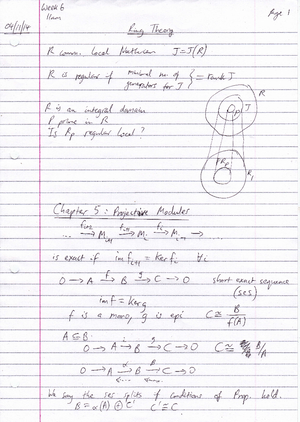 Week 6
11am
Page 1
04/11/14
Ring Theory
R comm. local Noetherian J=J(R)
R is regular if minimal no. of generators for J } = rank J
R
P J
R is an integral domain
P prime in R
Is Rp regular local?
PRp
Chapter 5: Projective Modules
... → M → M → M → ...
is exact if im f = Ker f ∀i
0 → A →f B →g C → 0 short exact sequence
(ses)
im f = Ker g
f is a mono, g is epi C ≅ B/f(A)
A ⊆ B
0 → A →i B → C → 0 C ≅ B/A
0 → A →α B →β C → 0
We say the ses splits if conditions of Prop. hold.
B = α(A) ⊕ C' C' ≅ C